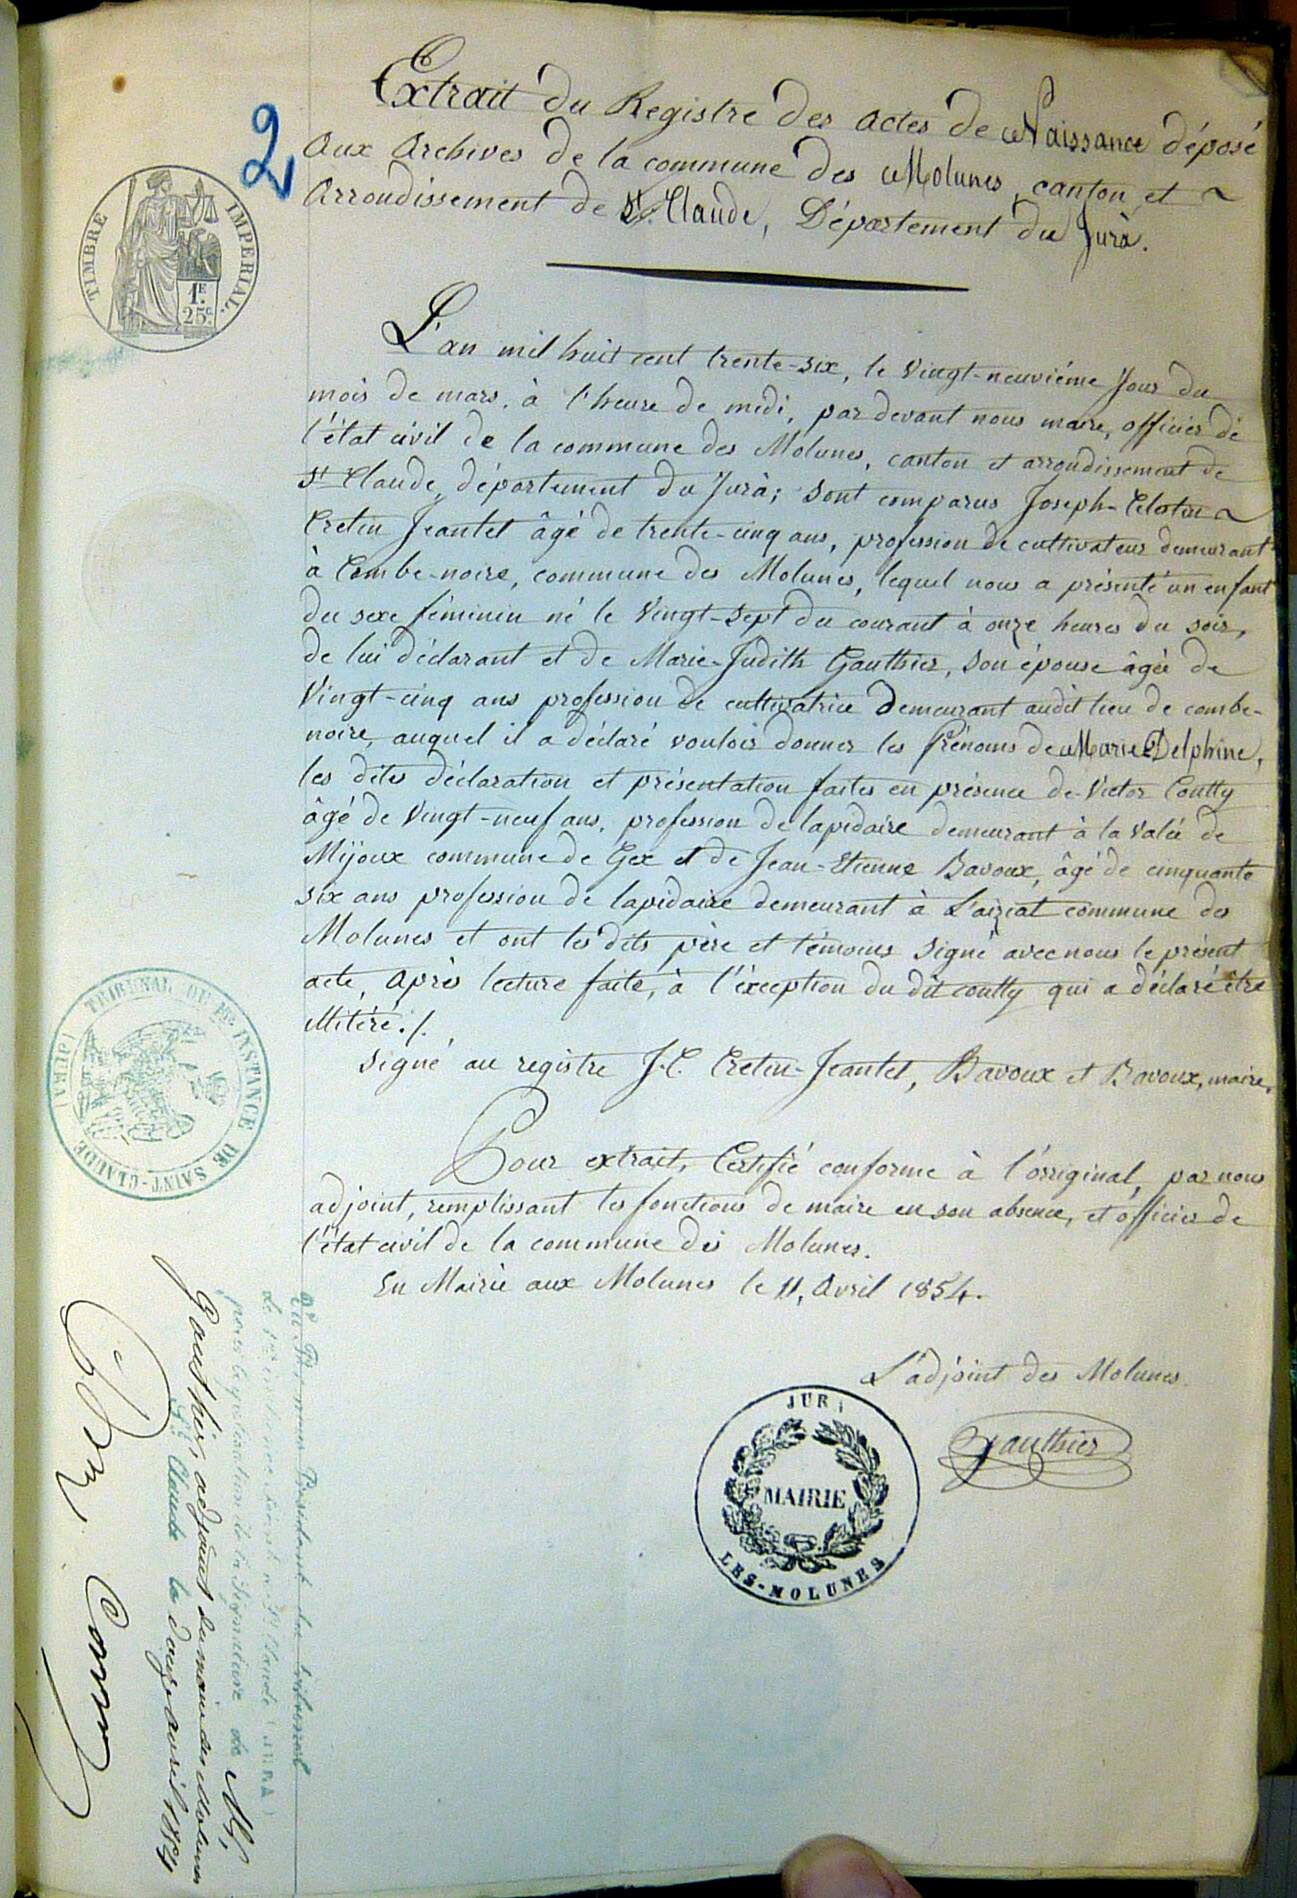 2
Extrait du Registre des actes de Naissance déposé
aux archives de la commune des Molunes, canton et
arrondissement de St. Claude, Département du Jura.
TIMBRE IMPERIAL
1F.
25c.
L'an mil huit cent trente-six, le vingt-neuviéme Jour du
mois de mars, à l'heure de midi, par devant nous maire, officier de
l'état civil de la commune des Molunes, canton et arrondissement de
St Claude, département du Jura; sont comparus Joseph-Celestin
Cretin Jeantet âgé de trente-cinq ans, profession de cultivateur demeurant
à Combe-noire, commune des Molunes, lequel nous a présenté un enfant
du sexe féminin né le vingt-sept du courant à onze heures du soir,
de lui déclarant et de Marie-Judith Gauthier, son épouse âgée de
vingt-cinq ans profession de cultivatrice demeurant audit lieu de combe-
noire, auquel il a déclaré vouloir donner les Prénoms de Marie Delphine,
les dites déclaration et présentation faites en présence de Victor Coutty
âgé de vingt-neuf ans, profession de lapidaire demeurant à la valée de
Mijoux commune de Gex et de Jean-Etienne Bavoux, âgé de cinquante
six ans profession de lapidaire demeurant à L'aiziat commune des
Molunes et ont les dits père et témoins signé avec nous le présent
acte, après lecture faite, à l'éxception du dit coutty qui a déclaré être
illitéré./.
signé au registre J-C. Cretin-Jeantet, Bavoux et Bavoux, maire.
TRIBUNAL DE 1re INSTANCE DE SAINT-CLAUDE (JURA)
Pour extrait, Certifié conforme à l'original, par nous
adjoint, remplissant les fonctions de maire en son absence, et officier de
l'état civil de la commune des Molunes.
En Mairie aux Molunes le 11, Avril 1854.
L'adjoint des Molunes.
Gauthier
JURA
MAIRIE
LES-MOLUNES
Vu Par nous Président du tribunal
de 1re instance séant à St Claude (JURA)
pour légalisation de la Signature de M.
Gauthier, adjoint du maire des Molunes
St Claude le douze avril 1854